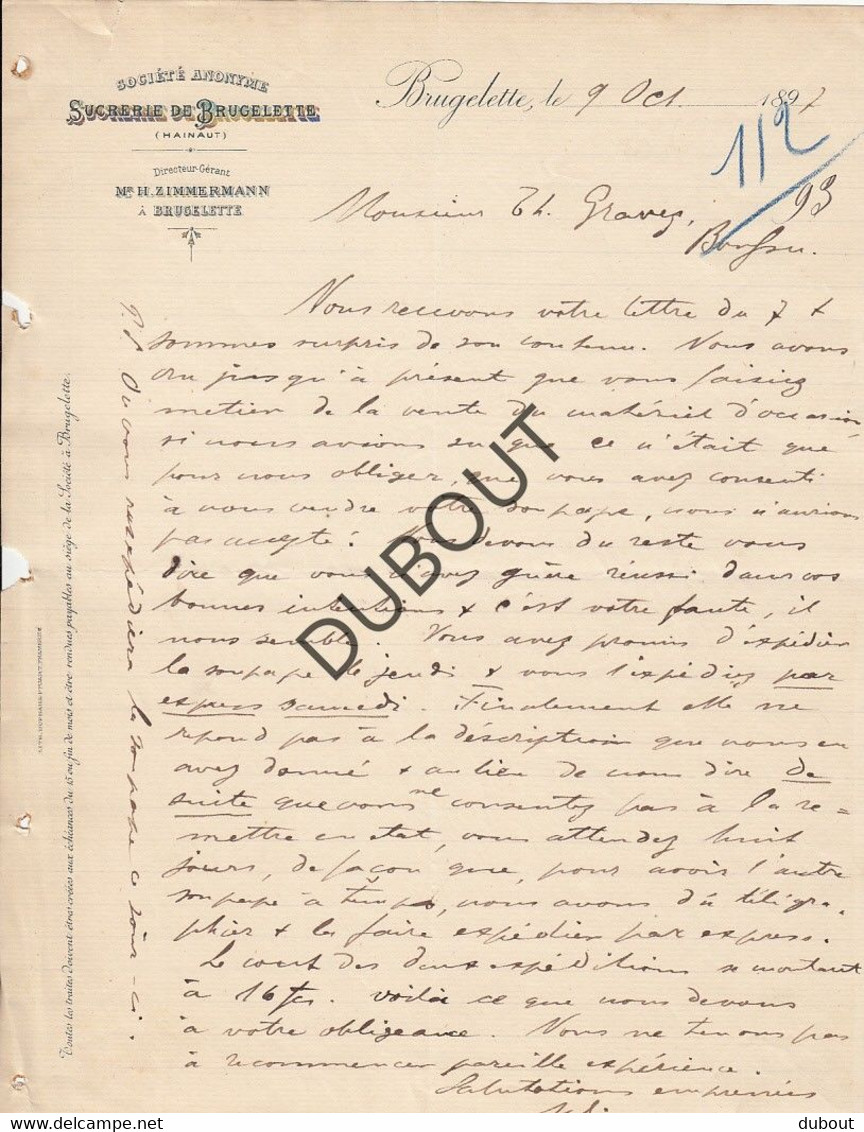 SOCIÉTÉ ANONYME
SUCRERIE DE BRUGELETTE
(HAINAUT)
Directeur-Gérant
MR H. ZIMMERMANN
À BRUGELETTE
Brugelette, le 9 Oct. 1897
112
93
Monsieur Th. Gravez,
Boussu.
Nous recevons votre lettre du 7 &
sommes surpris de son contenu. Nous avons
cru jusqu'à présent que vous faisiez
metier de la vente du matériel d'occasion
si nous avions su que ce n'était que
pour nous obliger, que vous avez consenti
à nous vendre votre soupape, nous n'aurions
pas accepté. Nous devons du reste vous
dire que vous n'avez guère réussi dans vos
bonnes intentions & c'est votre faute, il
nous semble. Vous avez promis d'expédier
la soupape le jeudi & vous l'expédiez par
express samedi. Finalement elle ne
repond pas à la déscription que nous en
avez donné & au lieu de nous dire de
suite que vous ne consentez pas à la re=
mettre en état, vous attendez huit
jours, de façon que, pour avoir l'autre
soupape à temps, nous avons dû télégra-
phier & la faire expédier par express.
Le cout des deux expéditions se montant
à 16 frs. voilà ce que nous devons
à votre obligeance. Nous ne tenons pas
à recommencer pareille expérience.
Salutations empressées
P.S. On vous réexpédiera la soupape ce soir-ci.
Toutes les traites doivent être créées aux échéances du 15 ou fin de mois et être rendues payables au siège de la Société à Brugelette.
DUBOUT
www.delcampe.net
dubout